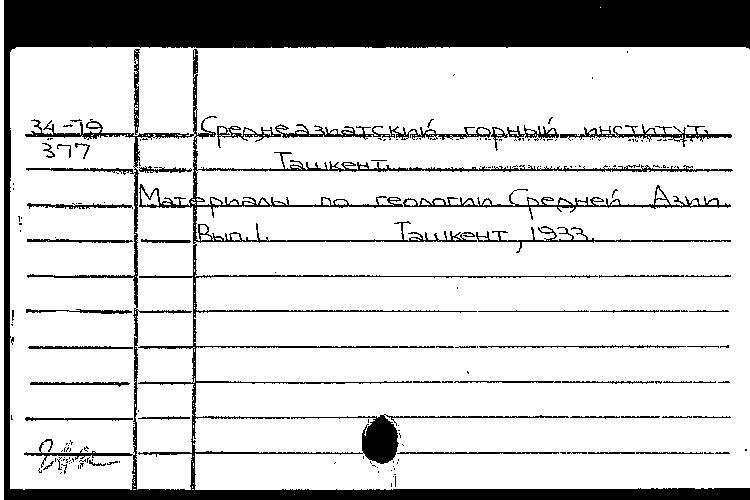 34-79 Среднеазиатский горный институт.
377 Ташкент.
Материалы по геологии Средней Азии.
Вып.1. Ташкент, 1933.